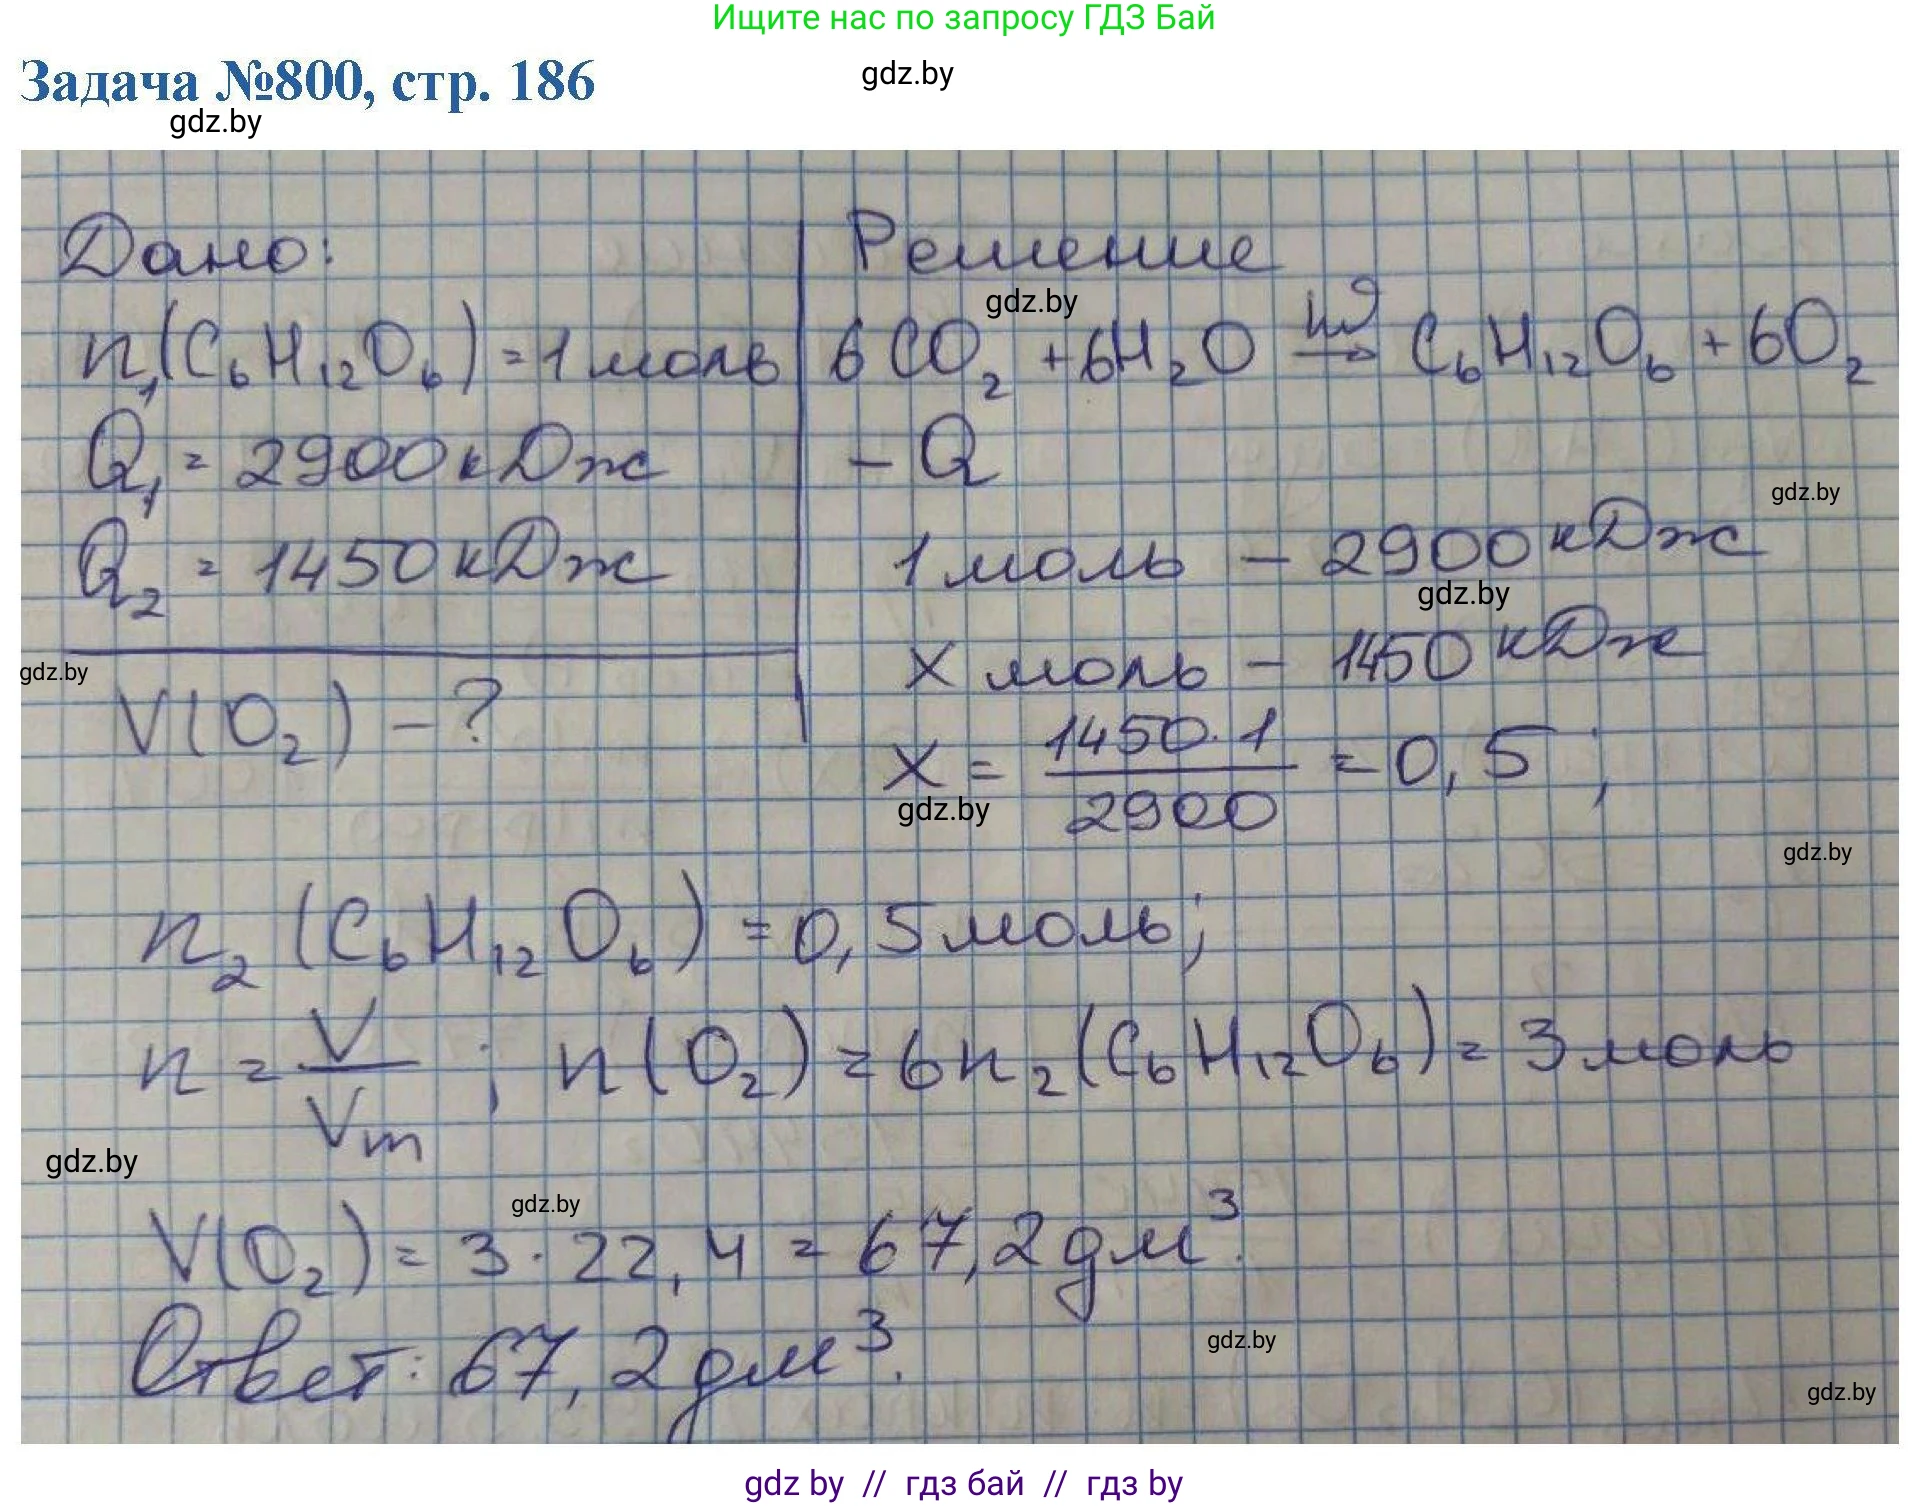 Ищите нас по запросу ГДЗ Бай
Задача №800, стр. 186
gdz.by
gdz.by
Дано:
n₁(C₆H₁₂O₆) = 1 моль
Q₁ = 2900 кДж
Q₂ = 1450 кДж
gdz.by
V(O₂) - ?
Решение
gdz.by
6CO₂ + 6H₂O hϑ→ C₆H₁₂O₆ + 6O₂
- Q
gdz.by
1 моль - 2900 кДж
gdz.by
x моль - 1450 кДж
x = 1450·1/2900 = 0,5;
gdz.by
gdz.by
n₂ (C₆H₁₂O₆) = 0,5 моль;
n = V/Vm; n(O₂) = 6n₂(C₆H₁₂O₆) = 3 моль
gdz.by
gdz.by
V(O₂) = 3·22,4 = 67,2 дм³.
gdz.by
Ответ: 67,2 дм³.
gdz.by
gdz by // гдз бай // гдз by